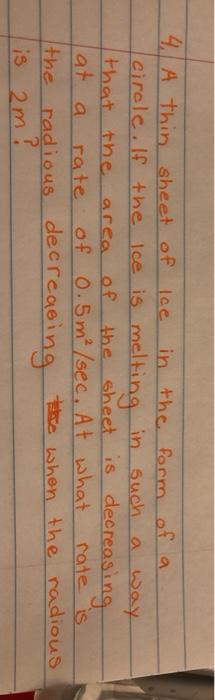 4. A thin sheet of Ice in the form of a
circle. If the Ice is melting in such a way
that the area of the sheet is decreasing
at a rate of 0.5m²/sec. At what rate is
the radious decreasing when the radious
is 2m?